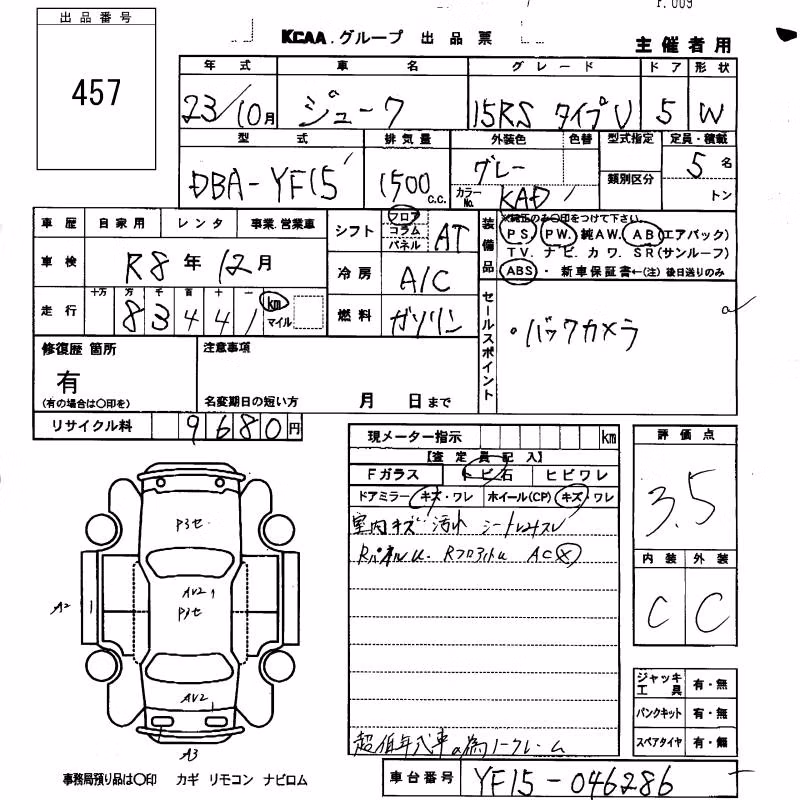 出品番号
457
KCAA グループ 出品票
主催者用
年式 車名 グレード ドア 形状
23/10月 ジューク 15RS タイプV 5 W
型式 排気量 外装色 色替 型式指定 定員・積載
DBA-YF15 1500 C.C. グレー カラーNo. KAD 類別区分 5名 トン
車歴 自家用 レンタ 事業.営業車
車検 R8年12月
走行 十万 万 千 百 十 一 km マイル
83441
シフト フロア コラム パネル AT
冷房 A/C
燃料 ガソリン
装備品 ※純正のみ〇印をつけて下さい。
PS. PW. 純AW. AB(エアバック)
TV. ナビ. カワ. SR(サンルーフ)
ABS ・ 新車保証書←(注) 後日送りのみ
セールスポイント
・バックカメラ
修復歴 箇所
有
(有の場合は〇印を)
注意事項
名変期日の短い方 月 日まで
リサイクル料 9680円
現メーター指示 km
【査定員記入】
Fガラス トビ石 ヒビワレ
ドアミラー キズ・ワレ ホイール(CP) キズ・ワレ
室内キズ 汚れ
AC
評価点
3.5
内装 外装
C C
P3セ
AV2
P1セ
A2
AV2
A3
ジャッキ工具 有・無
パンクキット 有・無
スペアタイヤ 有・無
超低年式車の為ノークレーム
事務局預り品は〇印 カギ リモコン ナビロム
車台番号 YF15-046286